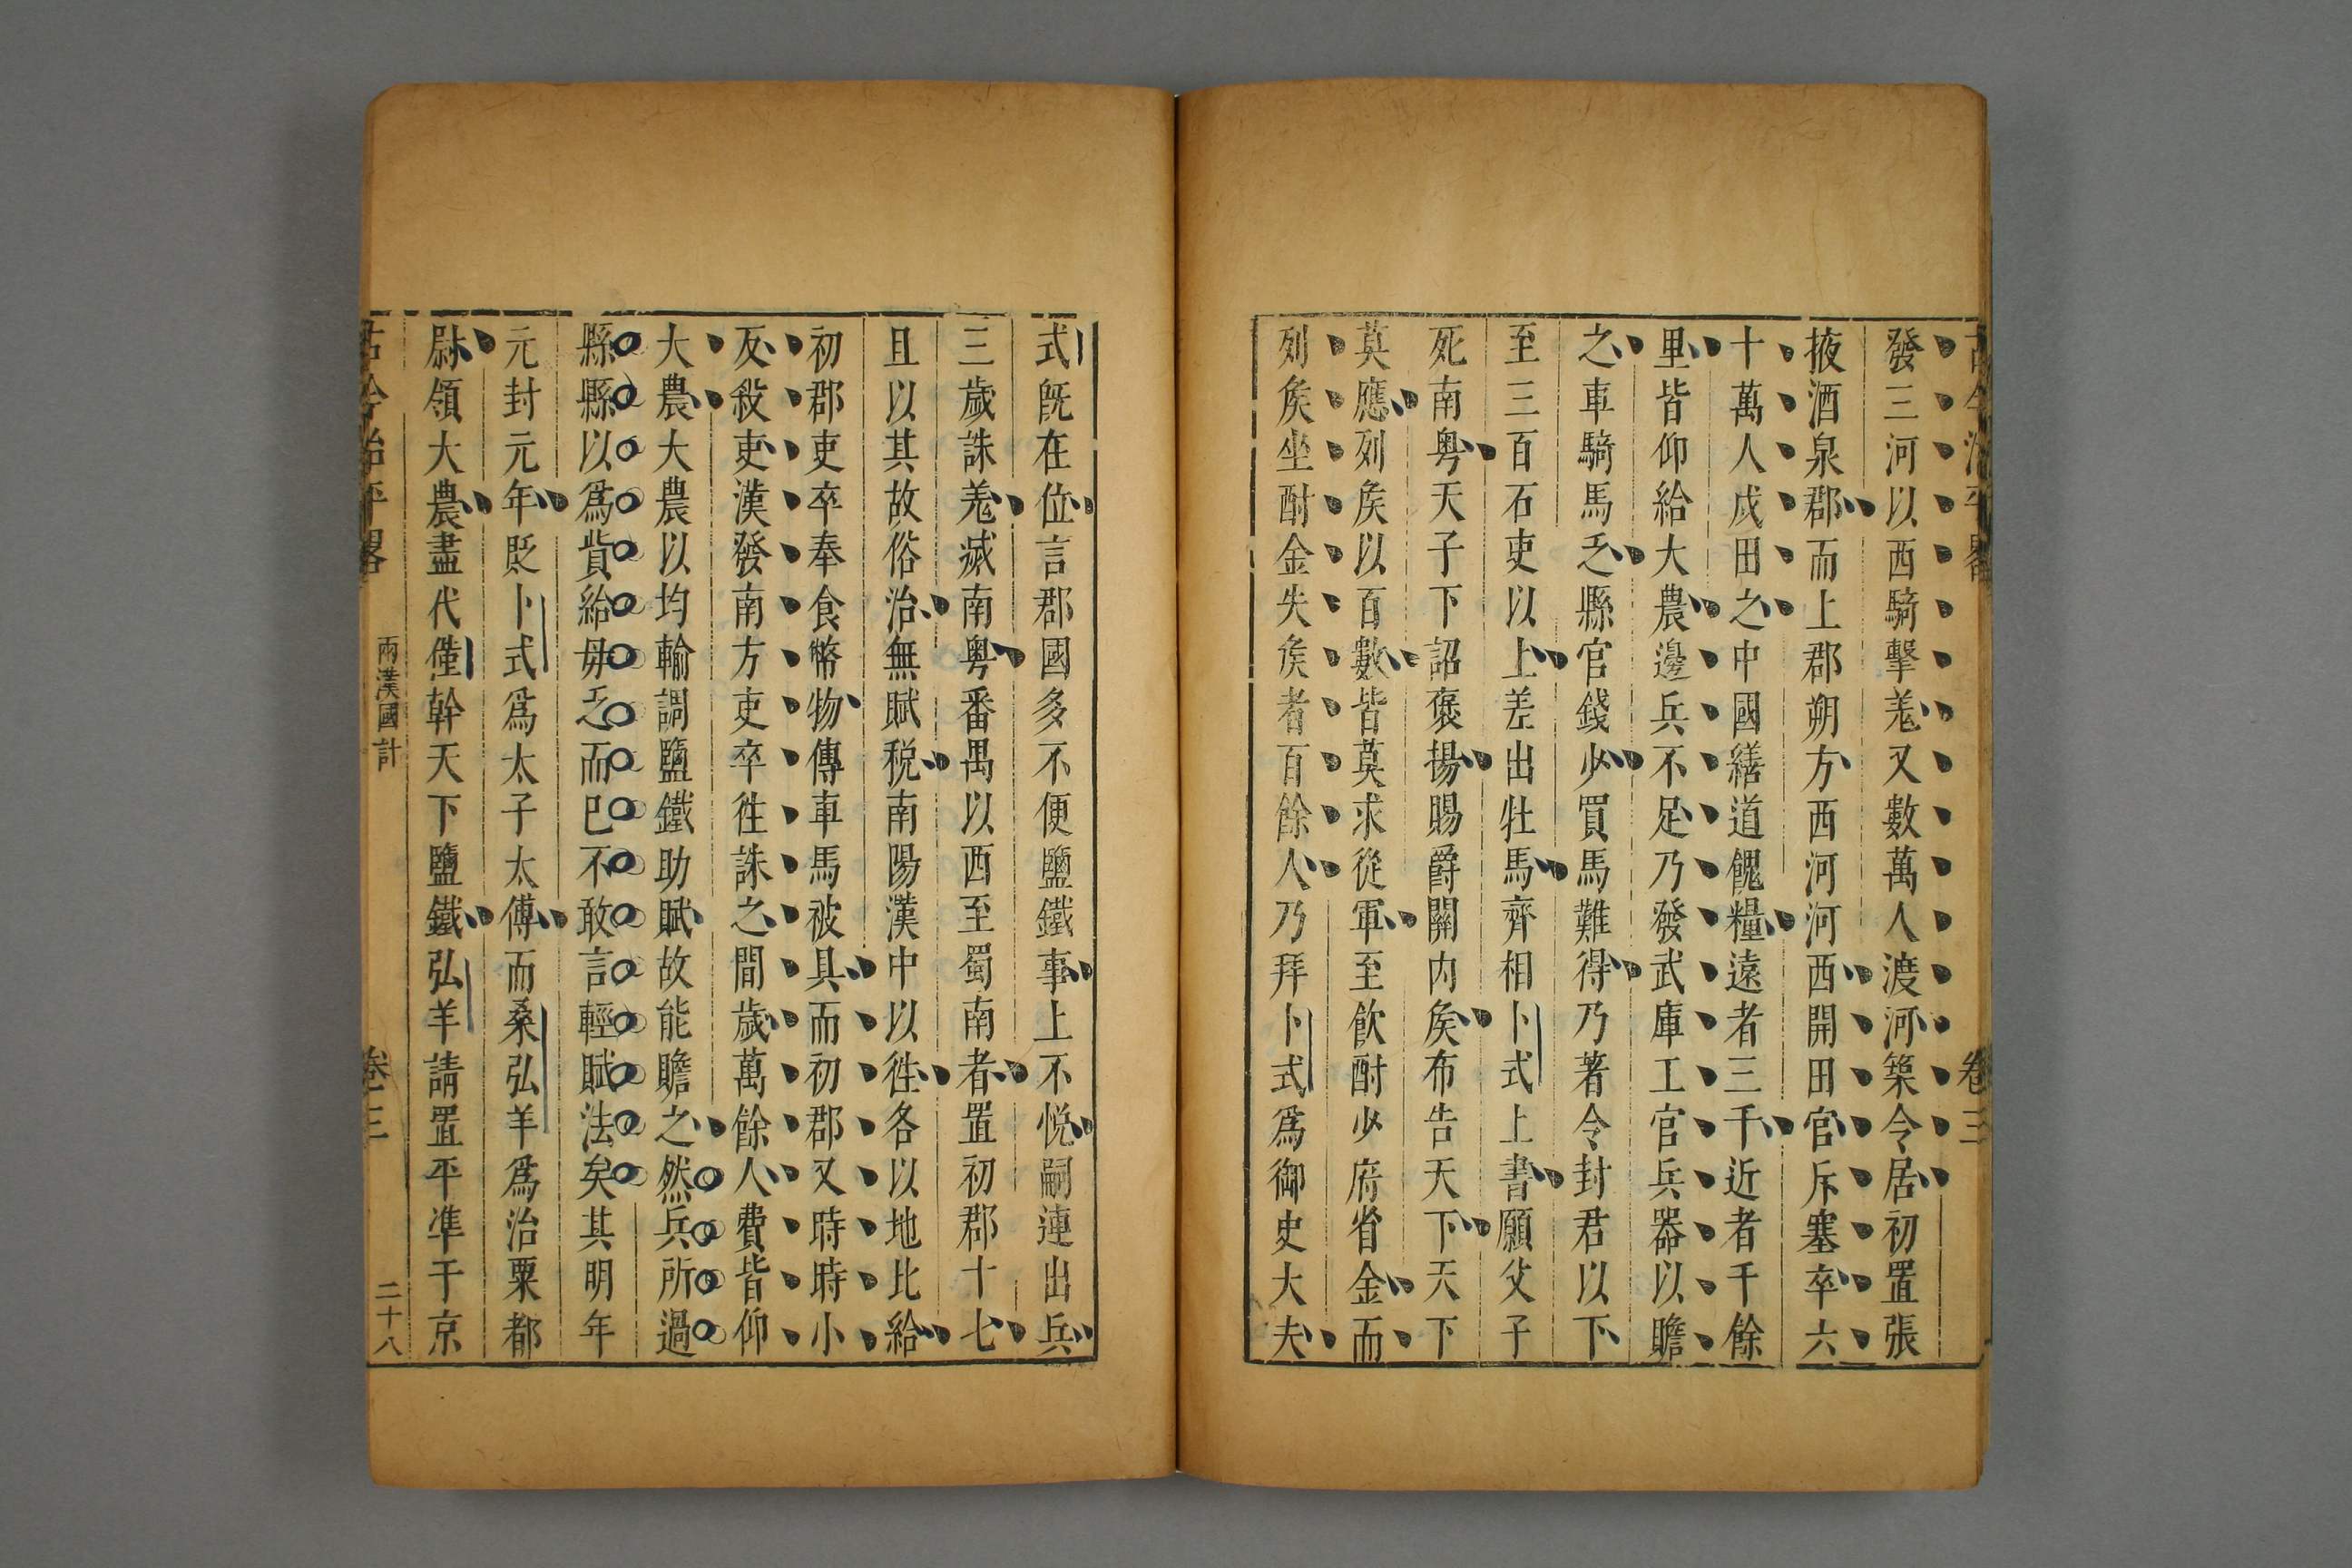 古今治平畧
卷三
發三河以西騎擊羗又數萬人渡河築令居初置張
掖酒泉郡而上郡朔方西河河西開田官斥塞卒六
十萬人戍田之中國繕道餽糧遠者三千近者千餘
里皆仰給大農邊兵不足乃發武庫工官兵器以贍
之車騎馬乏縣官錢少買馬難得乃著令封君以下
至三百石吏以上差出牡馬齊相卜式上書願父子
死南粤天子下詔褒揚賜爵關内矦布告天下天下
莫應列矦以百數皆莫求從軍至飲酎少府省金而
列矦坐酎金失矦者百餘人乃拜卜式爲御史大夫
式既在位言郡國多不便鹽鐵事上不悦嗣連出兵
三歲誅羗滅南粤番禺以西至蜀南者置初郡十七
且以其故俗治無賦税南陽漢中以徃各以地比給
初郡吏卒奉食幣物傳車馬被具而初郡又時時小
反殺吏漢發南方吏卒徃誅之間歲萬餘人費皆仰
大農大農以均輸調鹽鐵助賦故能贍之然兵所過
縣縣以爲貲給毋乏而巳不敢言輕賦法矣其明年
元封元年貶卜式爲太子太傅而桑弘羊爲治粟都
尉領大農盡代僅幹天下鹽鐵弘羊請置平準于京
古今治平畧
兩漢國計
卷三
二十八